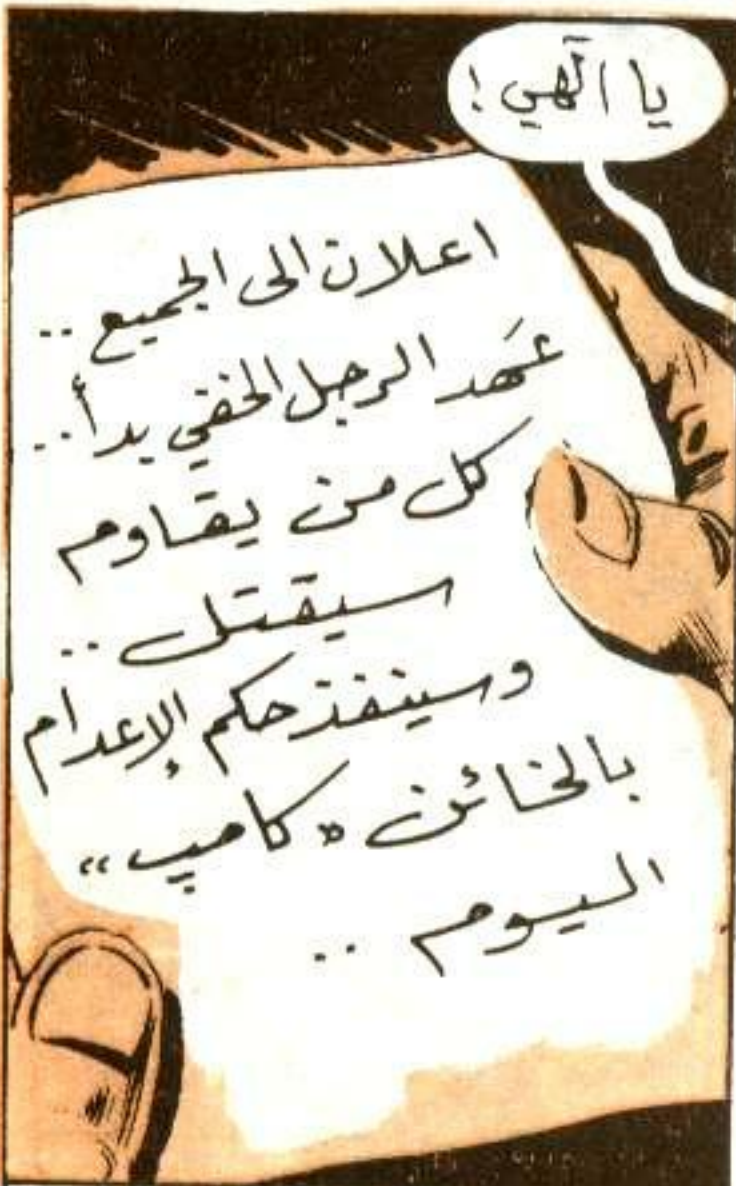 يا الٓهي !
اعلان الى الجميع ..
عَهد الرجل الخفي بدأ ..
كل من يقاوم
سيقتل ..
وسينفذ حكم الإعدام
بالخائن «كامپ»
اليوم ..